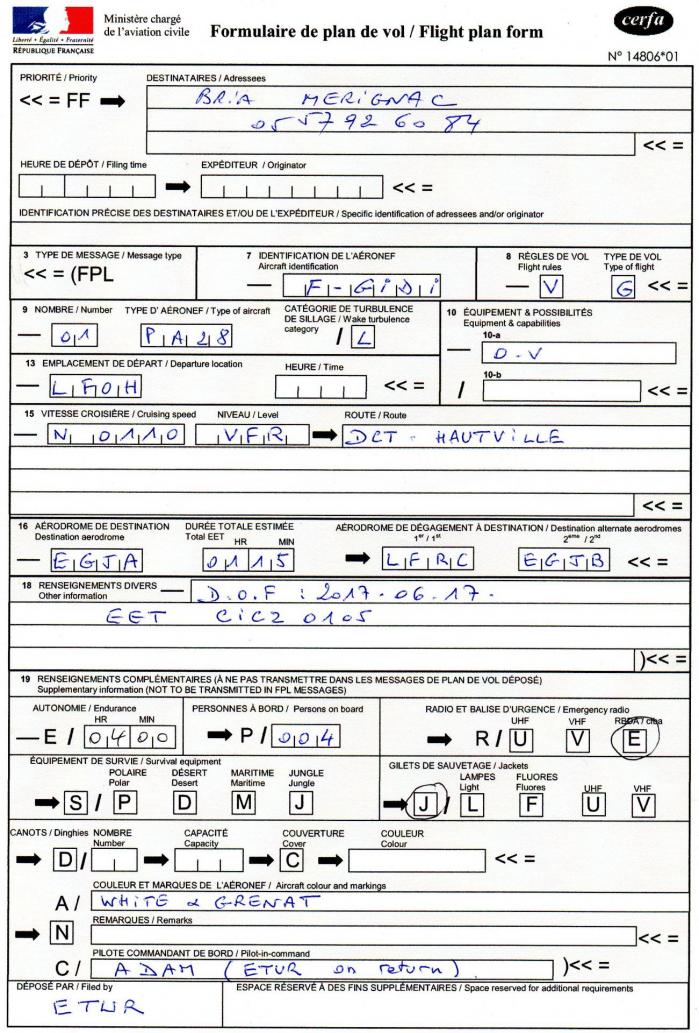 Liberté • Égalité • Fraternité
RÉPUBLIQUE FRANÇAISE
Ministère chargé
de l'aviation civile
Formulaire de plan de vol / Flight plan form
cerfa
N° 14806*01
PRIORITÉ / Priority
DESTINATAIRES / Adressees
<< = FF
BRIA MERIGNAC
05 57 92 60 84
<< =
HEURE DE DÉPÔT / Filing time
EXPÉDITEUR / Originator
<< =
IDENTIFICATION PRÉCISE DES DESTINATAIRES ET/OU DE L'EXPÉDITEUR / Specific identification of adressees and/or originator
3 TYPE DE MESSAGE / Message type
<< = (FPL
7 IDENTIFICATION DE L'AÉRONEF
Aircraft identification
F-GIDI
8 RÈGLES DE VOL
Flight rules
V
TYPE DE VOL
Type of flight
G <<=
9 NOMBRE / Number
01
TYPE D' AÉRONEF / Type of aircraft
PA28
CATÉGORIE DE TURBULENCE
DE SILLAGE / Wake turbulence
category
/ L
10 ÉQUIPEMENT & POSSIBILITÉS
Equipment & capabilities
10-a
O-V
10-b
/
<< =
13 EMPLACEMENT DE DÉPART / Departure location
LFOH
HEURE / Time
<< =
15 VITESSE CROISIÈRE / Cruising speed
N 0110
NIVEAU / Level
VFR
ROUTE / Route
DCT - HAUTVILLE
<< =
16 AÉRODROME DE DESTINATION
Destination aerodrome
EGJA
DURÉE TOTALE ESTIMÉE
Total EET HR MIN
0115
AÉRODROME DE DÉGAGEMENT À DESTINATION / Destination alternate aerodromes
1er / 1st
LFRC
2ème / 2nd
EGJB
<< =
18 RENSEIGNEMENTS DIVERS
Other information
D.O.F : 2017-06-17-
EET CICZ 0105
)<< =
19 RENSEIGNEMENTS COMPLÉMENTAIRES (À NE PAS TRANSMETTRE DANS LES MESSAGES DE PLAN DE VOL DÉPOSÉ)
Supplementary information (NOT TO BE TRANSMITTED IN FPL MESSAGES)
AUTONOMIE / Endurance
HR MIN
E / 0400
PERSONNES À BORD / Persons on board
P / 004
RADIO ET BALISE D'URGENCE / Emergency radio
UHF VHF
R / U V E
ÉQUIPEMENT DE SURVIE / Survival equipment
POLAIRE DÉSERT MARITIME JUNGLE
Polar Desert Maritime Jungle
S / P D M J
GILETS DE SAUVETAGE / Jackets
LAMPES FLUORES
Light Fluores UHF VHF
J / L F U V
CANOTS / Dinghies
D /
NOMBRE
Number
CAPACITÉ
Capacity
COUVERTURE
Cover
C
COULEUR
Colour
<< =
COULEUR ET MARQUES DE L'AÉRONEF / Aircraft colour and markings
A / WHITE & GRENAT
REMARQUES / Remarks
N
<< =
PILOTE COMMANDANT DE BORD / Pilot-in-command
C / ADAM (ETUR on return)
)<< =
DÉPOSÉ PAR / Filed by
ETUR
ESPACE RÉSERVÉ À DES FINS SUPPLÉMENTAIRES / Space reserved for additional requirements